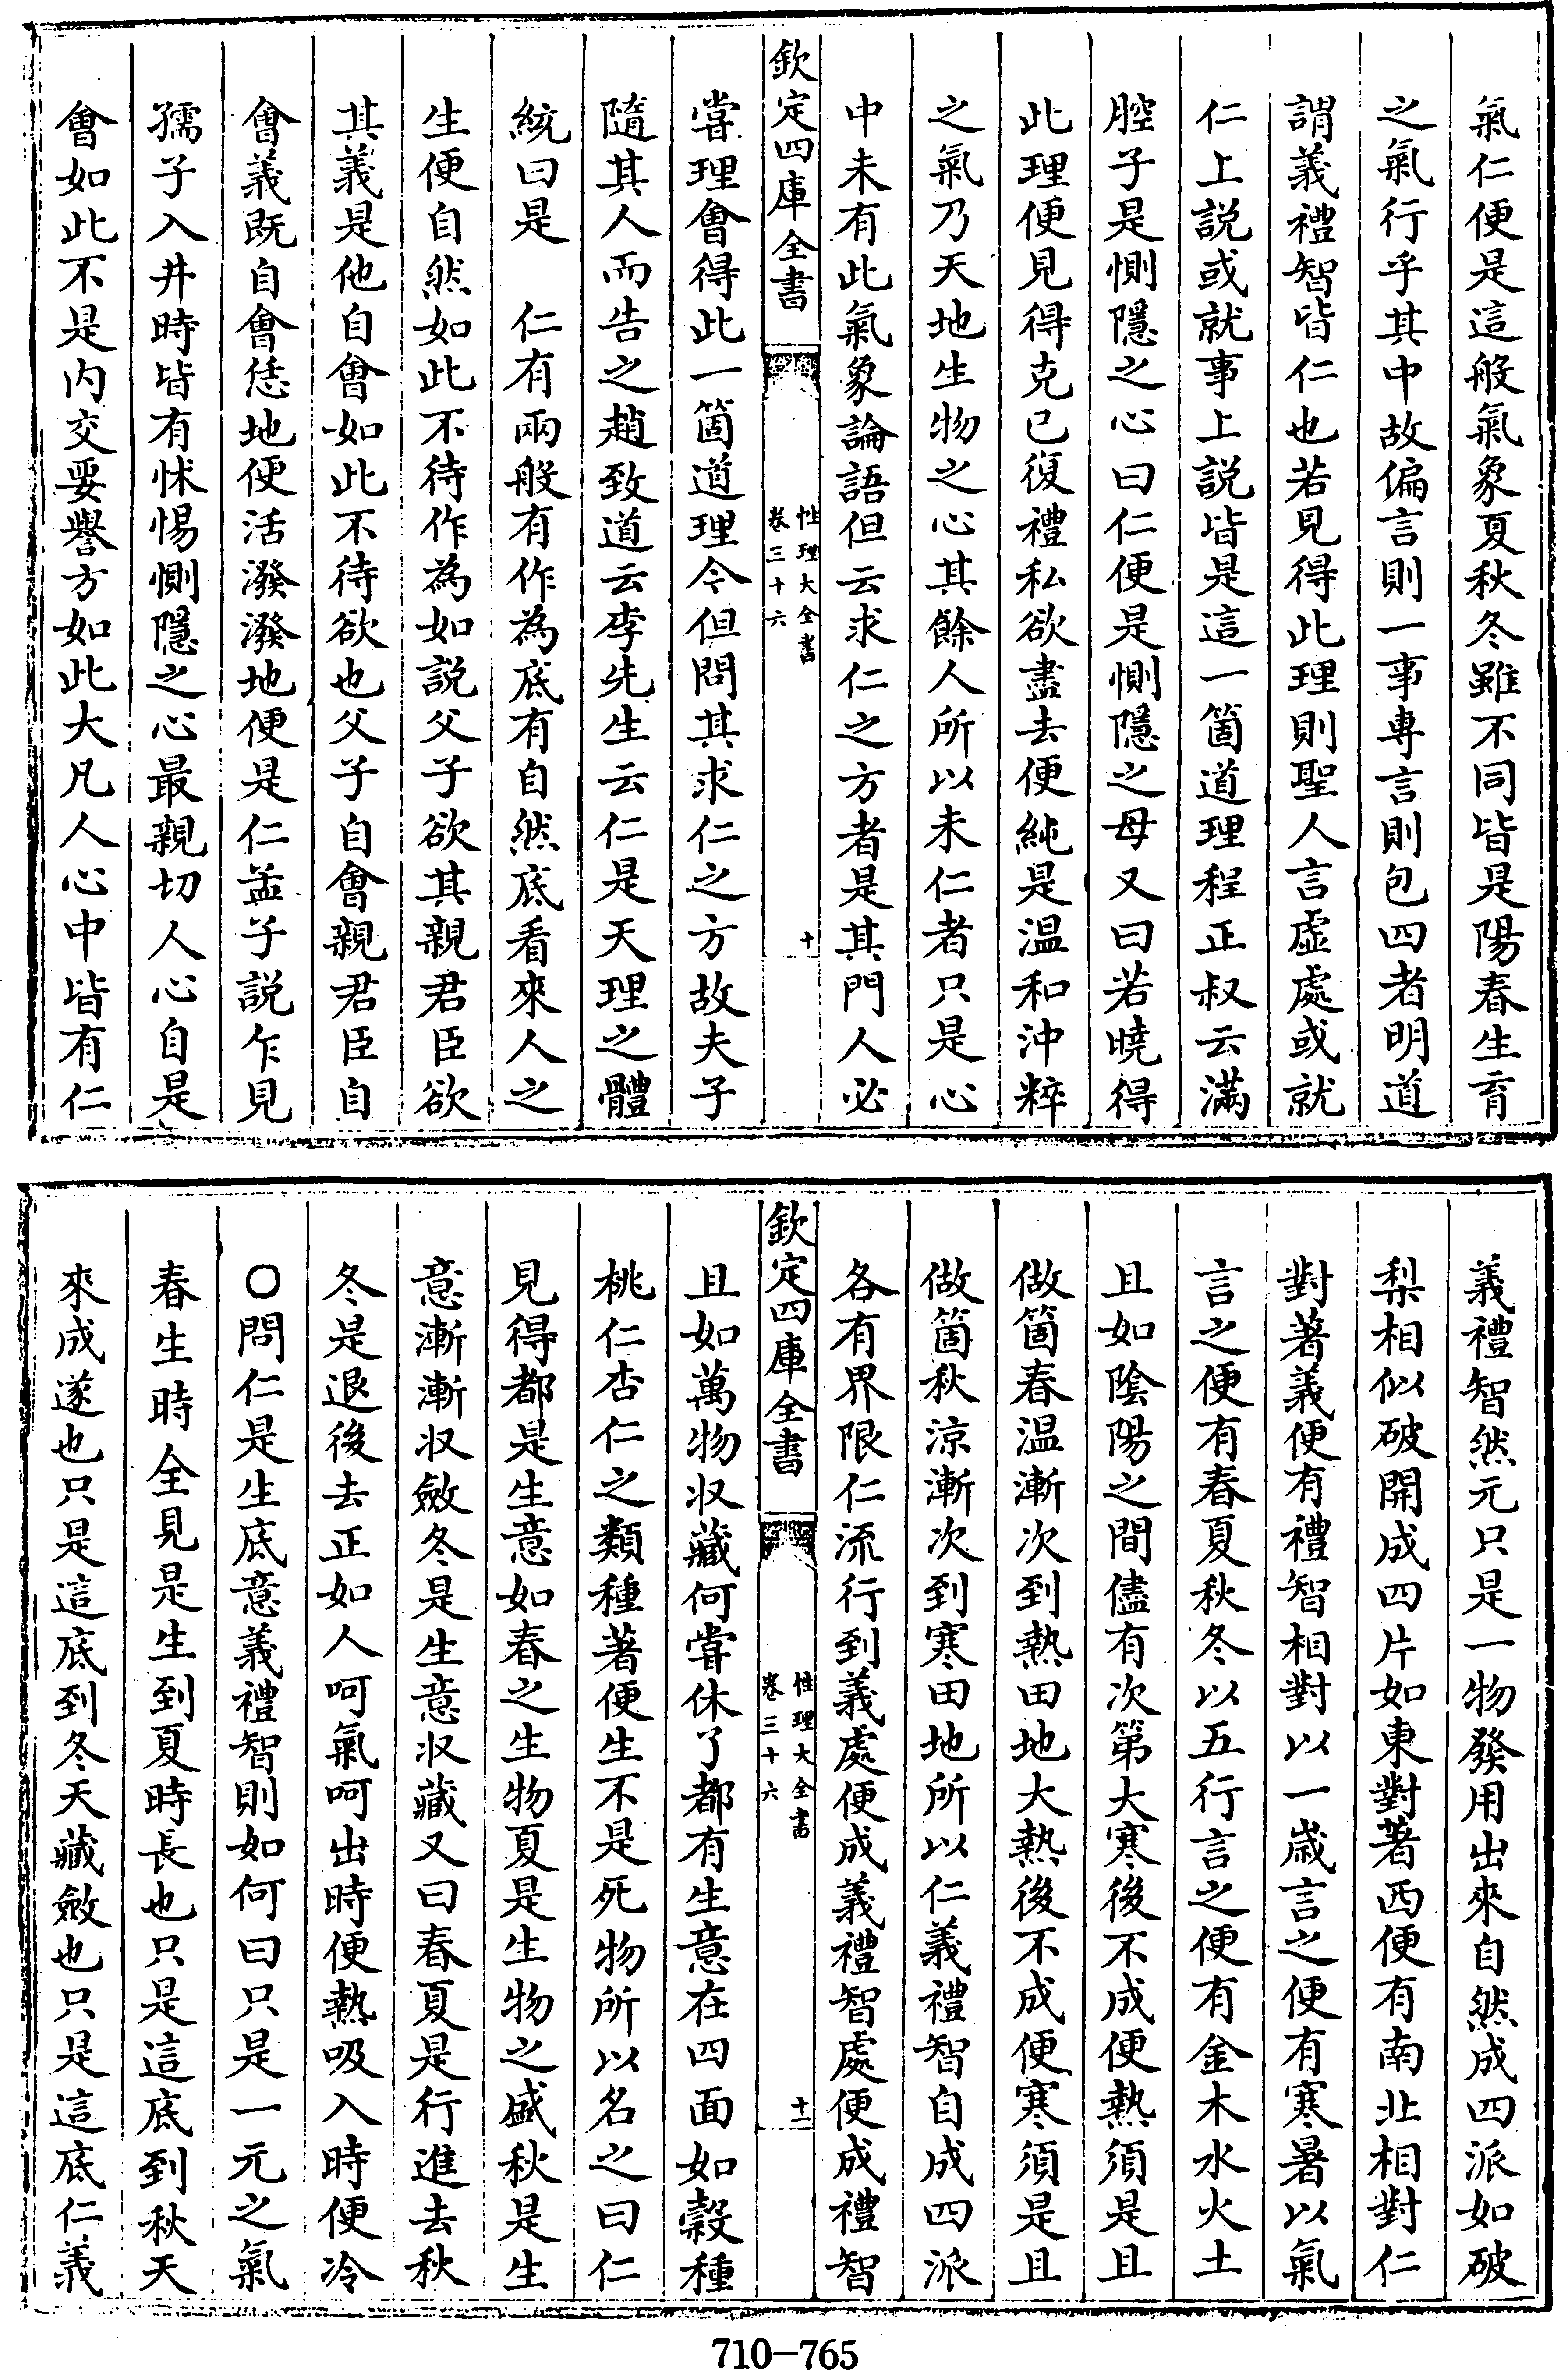 氣仁便是這般氣象夏秋冬雖不同皆是陽春生育
之氣行乎其中故偏言則一事專言則包四者明道
謂義禮智皆仁也若見得此理則聖人言虛處或就
仁上説或就事上説皆是這一箇道理程正叔云滿
腔子是惻隱之心曰仁便是惻隱之母又曰若曉得
此理便見得克己復禮私欲盡去便純是温和沖粹
之氣乃天地生物之心其餘人所以未仁者只是心
中未有此氣象論語但云求仁之方者是其門人必
欽定四庫全書
性理大全書
卷三十六
十
嘗理會得此一箇道理今但問其求仁之方故夫子
隨其人而告之趙致道云李先生云仁是天理之體
統曰是　仁有兩般有作為底有自然底看來人之
生便自然如此不待作為如説父子欲其親君臣欲
其義是他自會如此不待欲也父子自會親君臣自
會義既自會恁地便活潑潑地便是仁孟子説乍見
孺子入井時皆有怵惕惻隱之心最親切人心自是
會如此不是内交要譽方如此大凡人心中皆有仁
義禮智然元只是一物發用出來自然成四派如破
梨相似破開成四片如東對著西便有南北相對仁
對著義便有禮智相對以一歲言之便有寒暑以氣
言之便有春夏秋冬以五行言之便有金木水火土
且如陰陽之間儘有次第大寒後不成便熱須是且
做箇春温漸次到熱田地大熱後不成便寒須是且
做箇秋涼漸次到寒田地所以仁義禮智自成四派
各有界限仁流行到義處便成義禮智處便成禮智
欽定四庫全書
性理大全書
卷三十六
十一
且如萬物収藏何嘗休了都有生意在四面如穀種
桃仁杏仁之類種著便生不是死物所以名之曰仁
見得都是生意如春之生物夏是生物之盛秋是生
意漸漸収斂冬是生意収藏又曰春夏是行進去秋
冬是退後去正如人呵氣呵出時便熱吸入時便冷
○問仁是生底意義禮智則如何曰只是一元之氣
春生時全見是生到夏時長也只是這底到秋天
來成遂也只是這底到冬天藏斂也只是這底仁義
710-765